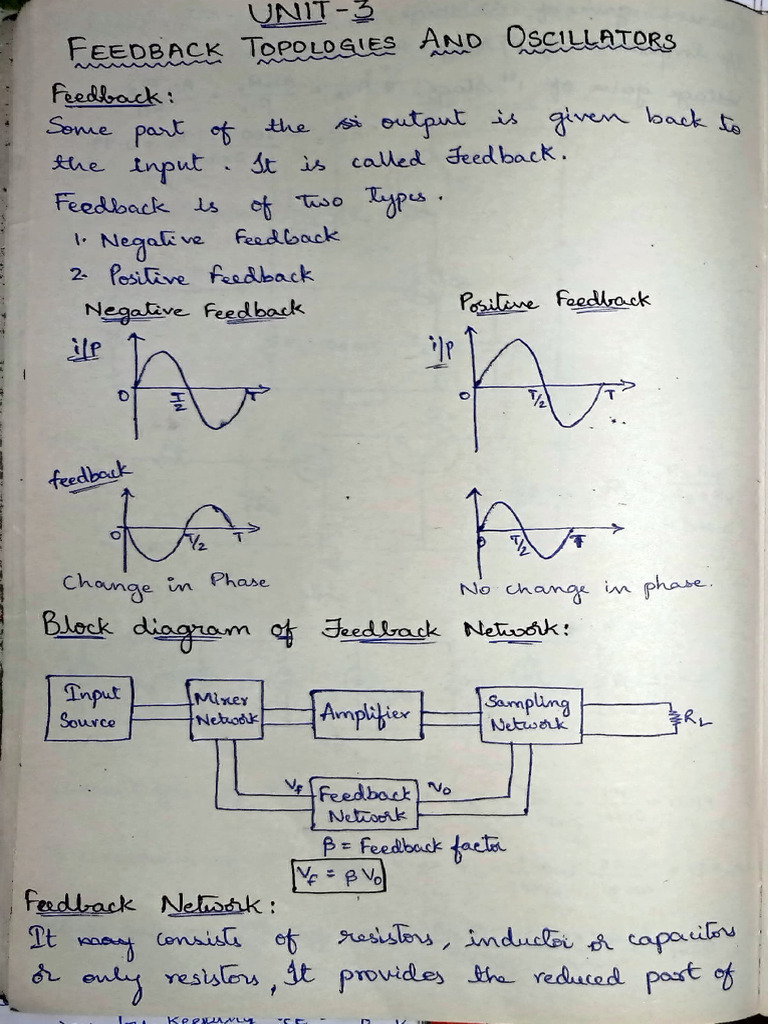 UNIT-3
FEEDBACK TOPOLOGIES AND OSCILLATORS
Feedback:
Some part of the output is given back to
the input. It is called Feedback.
Feedback is of two Types.
1. Negative Feedback
2. Positive Feedback
Negative Feedback
Positive Feedback
i/p
0
T/2
T
i/p
0
T/2
T
feedback
0
T/2
T
0
T/2
T
Change in Phase
No change in phase.
Block diagram of Feedback Network:
Input
Source
Mixer
Network
Amplifier
Sampling
Network
RL
Vf
Feedback
Network
Vo
β = Feedback factor
Vf = β Vo
Feedback Network:
It may consists of resistors, inductor or capacitors
or only resistors, It provides the reduced part of